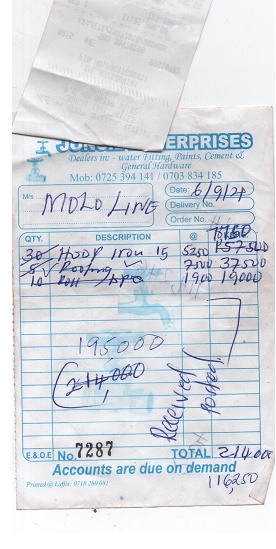 ERPRISES
Dealers in: - water Fitting, Paints, Cement &
General Hardware
Mob: 0725 394 141 / 0703 834 185
M/s MOLO LINE
Date: 6/9/21
Delivery No.
Order No.
QTY. DESCRIPTION @
30 Hoop Iron 15 5250 157500
5 Roofing 7500 37500
10 Roll 1900 19000
195000
214,000
Received
posted
E.&O.E No. 7287 TOTAL 214000
Accounts are due on demand
116,250
Printed @ Laffic: 0718 280 081